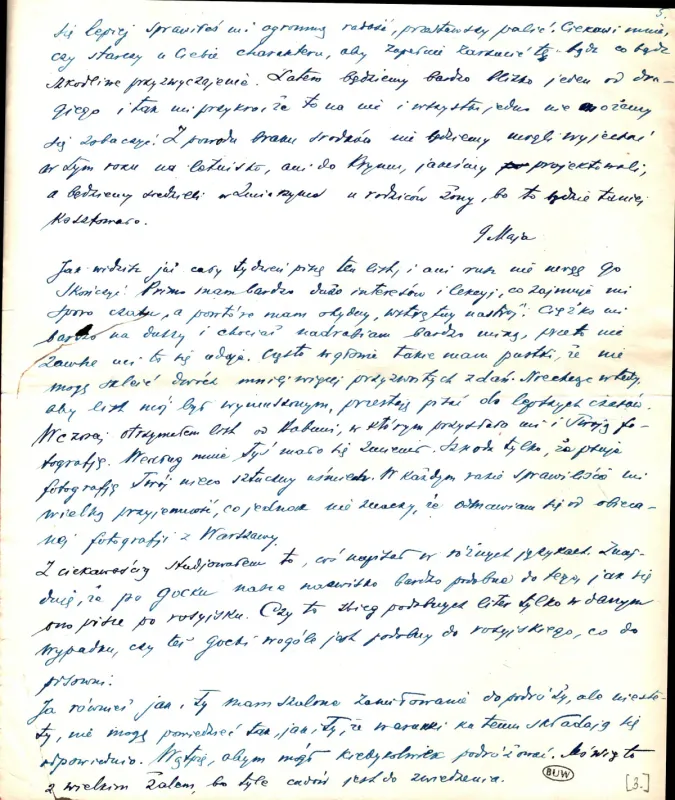 5.
się lepiej sprawiłeś mi ogromną radość, przestawszy palić. Ciekawi mnie,
czy starczy u Ciebie charakteru, aby zupełnie zarzucić tę bądź co bądź
szkodliwe przyzwyczajenie. Latem będziemy bardzo blisko jeden od dru-
giego i tak mi przykro, że to na nic i wszystko jedno nie możemy
się zobaczyć. Z powodu braku środków nie będziemy mogli wyjechać
w tym roku na letnisko, ani do Krymu, jakeśmy projektowali,
a będziemy siedzieli w u rodziców żony, bo to będzie taniej
kosztowało.
9 Maja
Jak widzisz już cały tydzień piszę ten list, i ani rusz nie mogę go
skończyć. Primo mam bardzo dużo interesów i lekcyj, co zajmuje mi
sporo czasu, a powtóre mam ohydny, wstrętny nastrój. Ciężko mi
bardzo na duszy i chociaż nadrabiam bardzo miną, przecie nie
zawsze mi to się udaje. Często w głowie takie mam pustki, że nie
mogę sklecić dwóch mniej więcej przyzwoitych zdań. Nie chcąc wtedy,
aby list mój był wymuszonym, przestaję pisać do lepszych czasów.
Wczoraj otrzymałem list od Babuni, w którym przysłała mi i Twoją fo-
tografję. Według mnie Tyś mało się zmienił. Szkoda tylko, że psuje
fotografję Twój nieco sztuczny uśmiech. W każdym razie sprawiliście mi
wielką przyjemność, co jednak nie znaczy, że odmawiam się od obieca-
nej fotografji z Warszawy.
Z ciekawością studjowałem to, coś napisał w różnych językach. Znaj-
duję, że po gocku nasze nazwisko bardzo podobne do tego, jak się
ono pisze po rosyjsku. Czy to zbieg podobnych liter tylko w danym
wypadku, czy też gocki wogóle jest podobny do rosyjskiego, co do
pisowni.
Ja również jak i Ty mam szalone zamiłowanie do podróży, ale nieste-
ty, nie mogę powiedzieć tak, jak Ty, że warunki ku temu składają się
odpowiednio. Wątpię, abym mógł kiedykolwiek podróżować. Mówię to
z wielkim żalem, bo tyle cudów jest do zwiedzenia.
BUW
[3.]